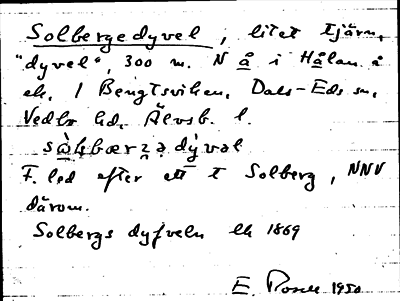 Solbergedyvel, litet tjärn,
"dyvel", 300 m. N å i Hålan å
ek. 1 Bengtsviken, Dals-Eds sn,
Vedbo hd. Älvsb. l.
dýväl
F. led efter ett t Solberg, NNV
därom.
Solbergs dyfveln ek 1869
E. Rosell 1950